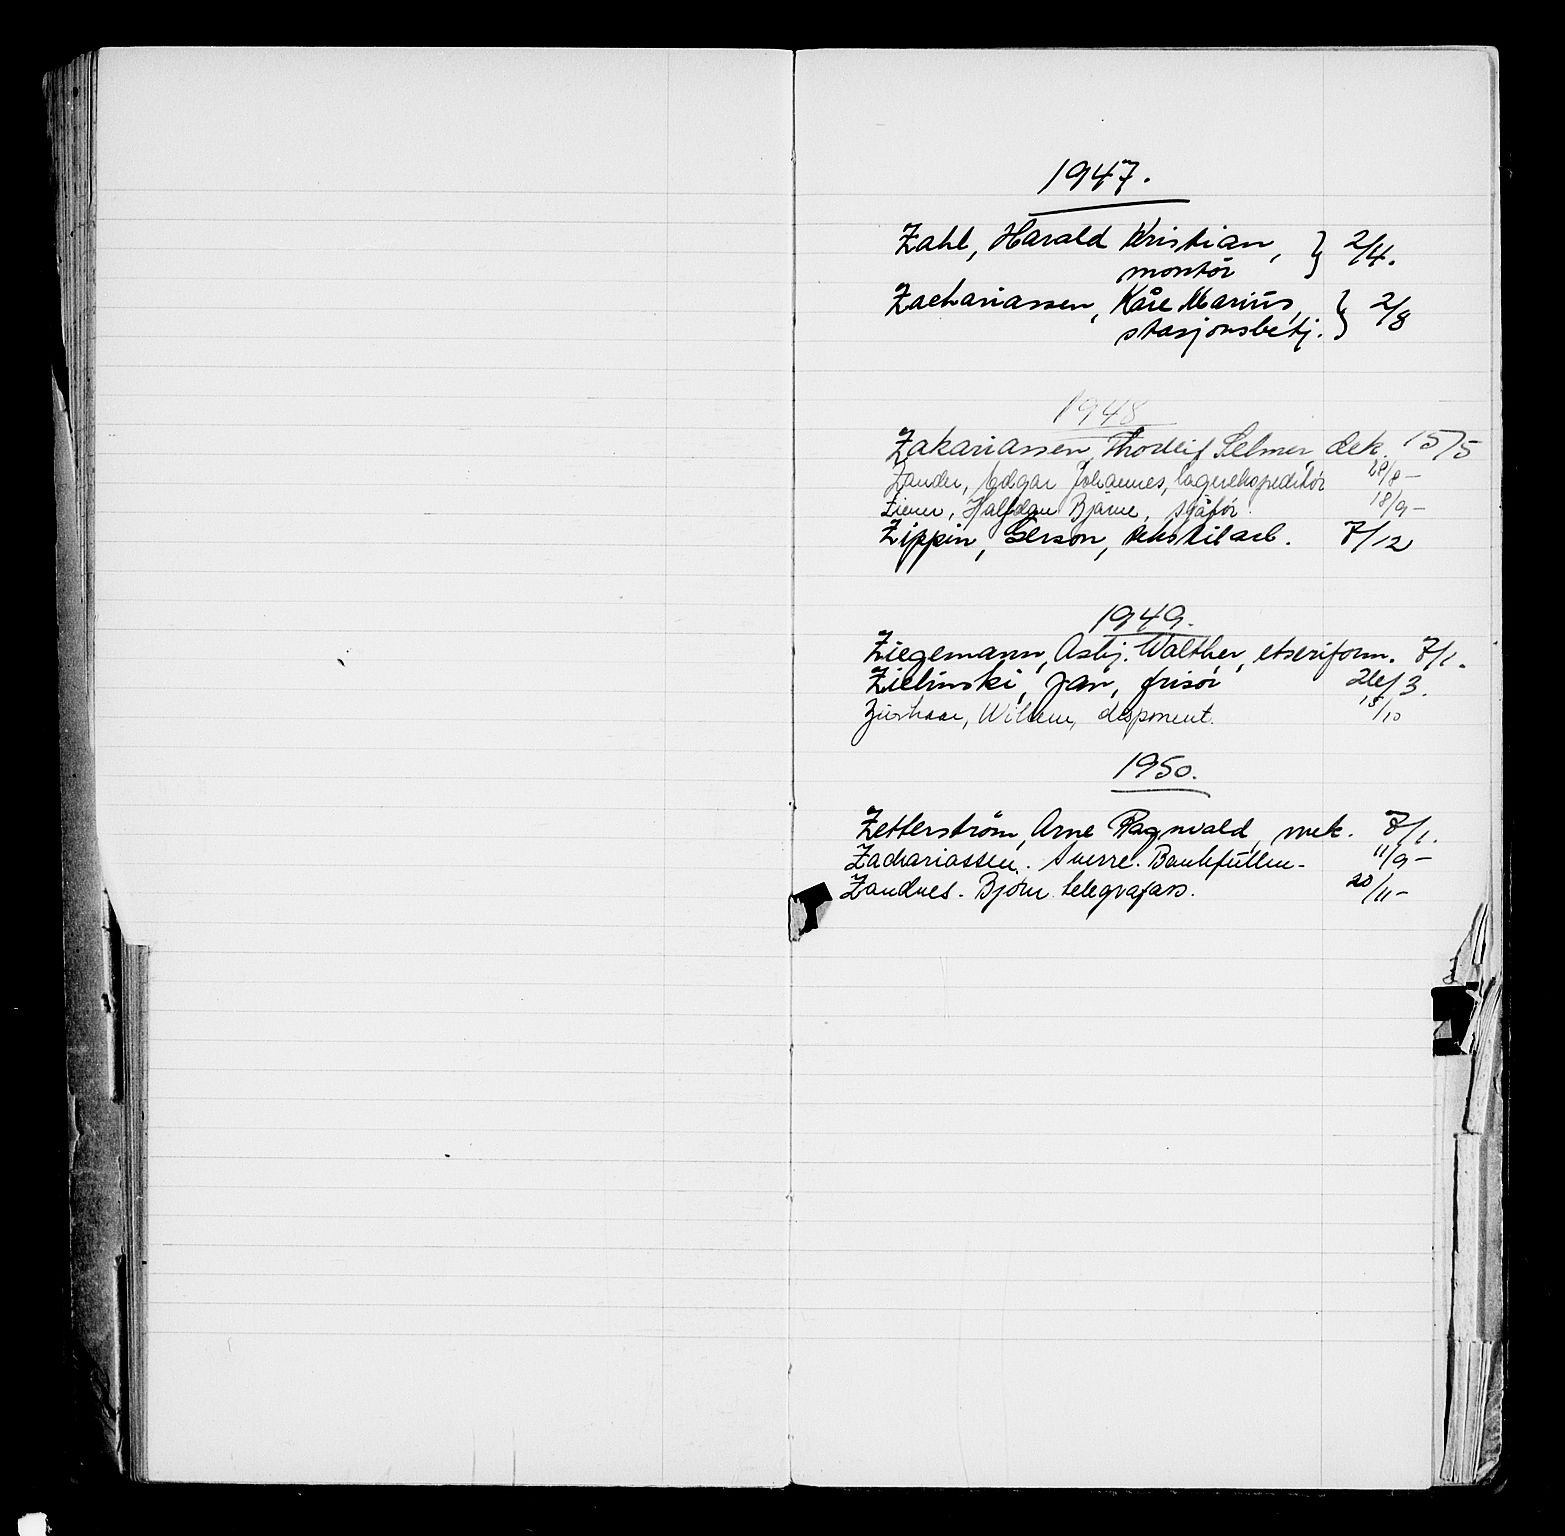 1947.
Zahl, Harald Kristian, } 2/4.
montör
Zachariassen, Kåre Marius, } 2/8
stasjonsbetj.
1948
Zakariassen, Thorleif Selmer, dek. 15/5
Zander, Edgar Johannes, lagerekspeditör 28/8 –
Ziener, Halfdan Bjarne, sjåför. 18/9 –
Zippin, Gerson, tekstilarb. 7/12
1949.
Ziegemann, Asbj. Walther, etseriform. 7/1.
Zielinski, Jan, frisör 26/3.
Willem, disponent. 15/10
1950.
Zetterström, Arne Ragnvald, mek. 7/1.
Zachariassen. Sverre. Bankfullm– 11/9 –
Zandnes. Björn. telegrafass. 20/11 –